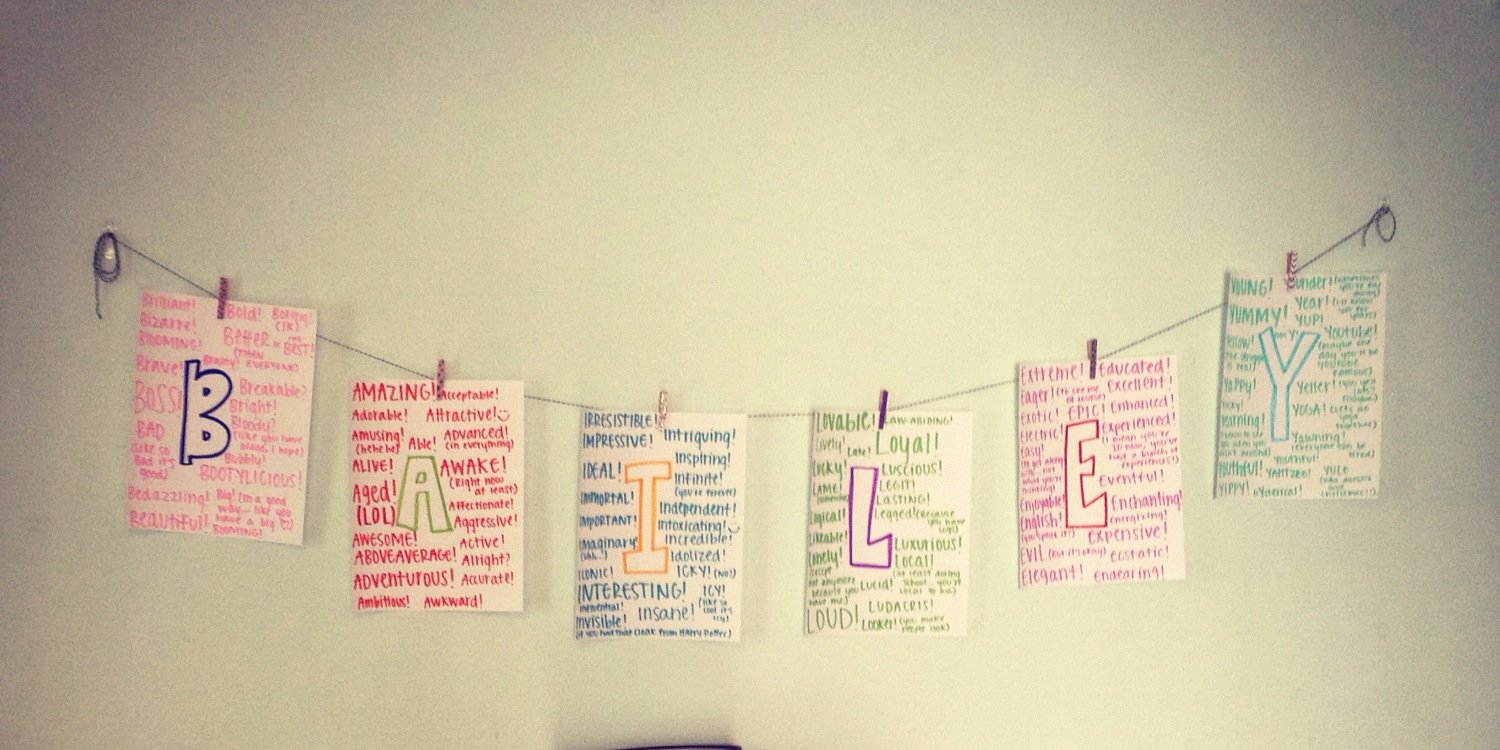 Brilliant! Bold! Boring!
(JK)
Bizarre!
BLOOMING! BeTTeR or BEST!
(THEN EVERYONE)
Brave! Brainy!
BOSS! Breakable?
Bright!
B
BAD Bloody?
(Like so (like you have
bad it's blood, I hope)
good) Bubbly!
BOOTYLICIOUS!
Bedazzling! Big! (in a good
way... like you
Beautiful! have a big
BOOMING!
AMAZING! Acceptable!
Adorable! Attractive!
Amusing! Able! ADVANCED!
(hehe he) (in everything)
ALIVE! AWAKE!
(Right now
at least)
A
Aged!
(LOL) Affectionate!
Aggressive!
AWESOME! Active!
ABOVEAVERAGE! Alright?
ADVENTUROUS! Accurate!
Ambitious! Awkward!
IRRESISTIBLE!
IMPRESSIVE! Intriguing!
Inspiring!
IDEAL! Infinite!
(you're forever)
I
IMMORTAL! Independent!
IMPORTANT! Intoxicating!
Imaginary Incredible!
(uhh...) Idolized!
ICONIC! ICKY! (NOT)
INTERESTING! ICY!
(like so
cool it's
icy)
Influential! Insane!
Invisible!
(if you had that cloak from Harry Potter)
Lovable! LAW-ABIDING!
Lively! Late! Loyal!
Lucky! LUSCIOUS!
LAME! LEGIT!
LASTING!
L
Logical! Legged! (because
you have
legs)
Likeable! LUXURIOUS!
Lonely! Local!
(except (at least during
not anymore school.. you're
because you Lucid! local to
have me.)
LUDACRIS!
LOUD! Looker! (you make
people look)
Extreme! Educated!
Eager! Excellent!
Exotic! EPIC! Enhanced!
Electric! Experienced!
Easy! (I mean you're
E
eventful!
Enjoyable! Enchanting!
English! energizing!
(you speak it?) Expensive!
EVIL (but it's okay) ecstatic!
Elegant! Endearing!
YOUNG! Yunder! (sometimes
you're far
away)
YUMMY! Year!
YUP!
Yellow! Youtube!
(the struggle (maybe one
is real) day you'll be
youtube
famous)
Y
Yappy! Yeller!
YOGA! (let's do
yoga
together)
Yearning! Yawning!
(everyone can be
tired)
YOUTHFUL!
YAHTZEE! YULE
YIPPY! christmas!)